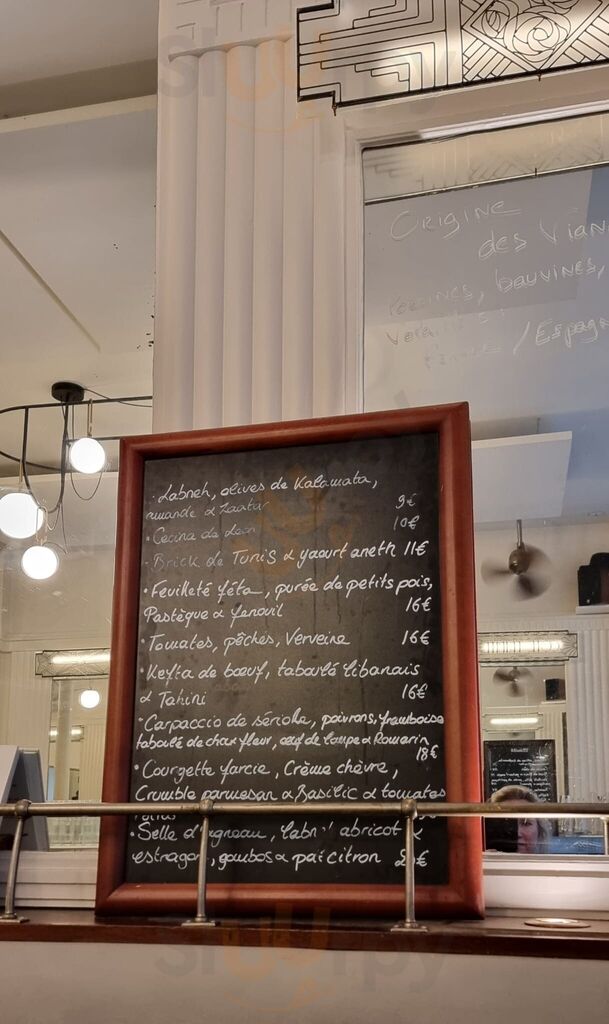 Origine
des Vian
bouvines,
/Espagn
· Labneh, olives de Kalamata,
amande & Zaatar 9€
· Cecina de Leon 10€
· Brick de Tunis & yaourt aneth 11€
· Feuilleté féta, purée de petits pois,
Pastèque & fenouil 16€
· Tomates, pêches, Verveine 16€
· Kefta de bœuf, taboulé libanais
& Tahini 16€
· Carpaccio de sériole, poivrons, framboise
taboulé de chou fleur, œuf de lompe & Romarin
18€
· Courgette farcie, Crème chèvre,
Crumble parmesan & Basilic & tomates
· Selle d'agneau, abricot &
estragon, gombos & citron
slurpy
slurpy